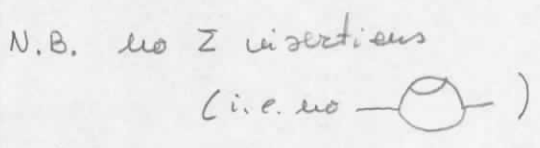 N.B. no Σ insertions
(i.e. no )